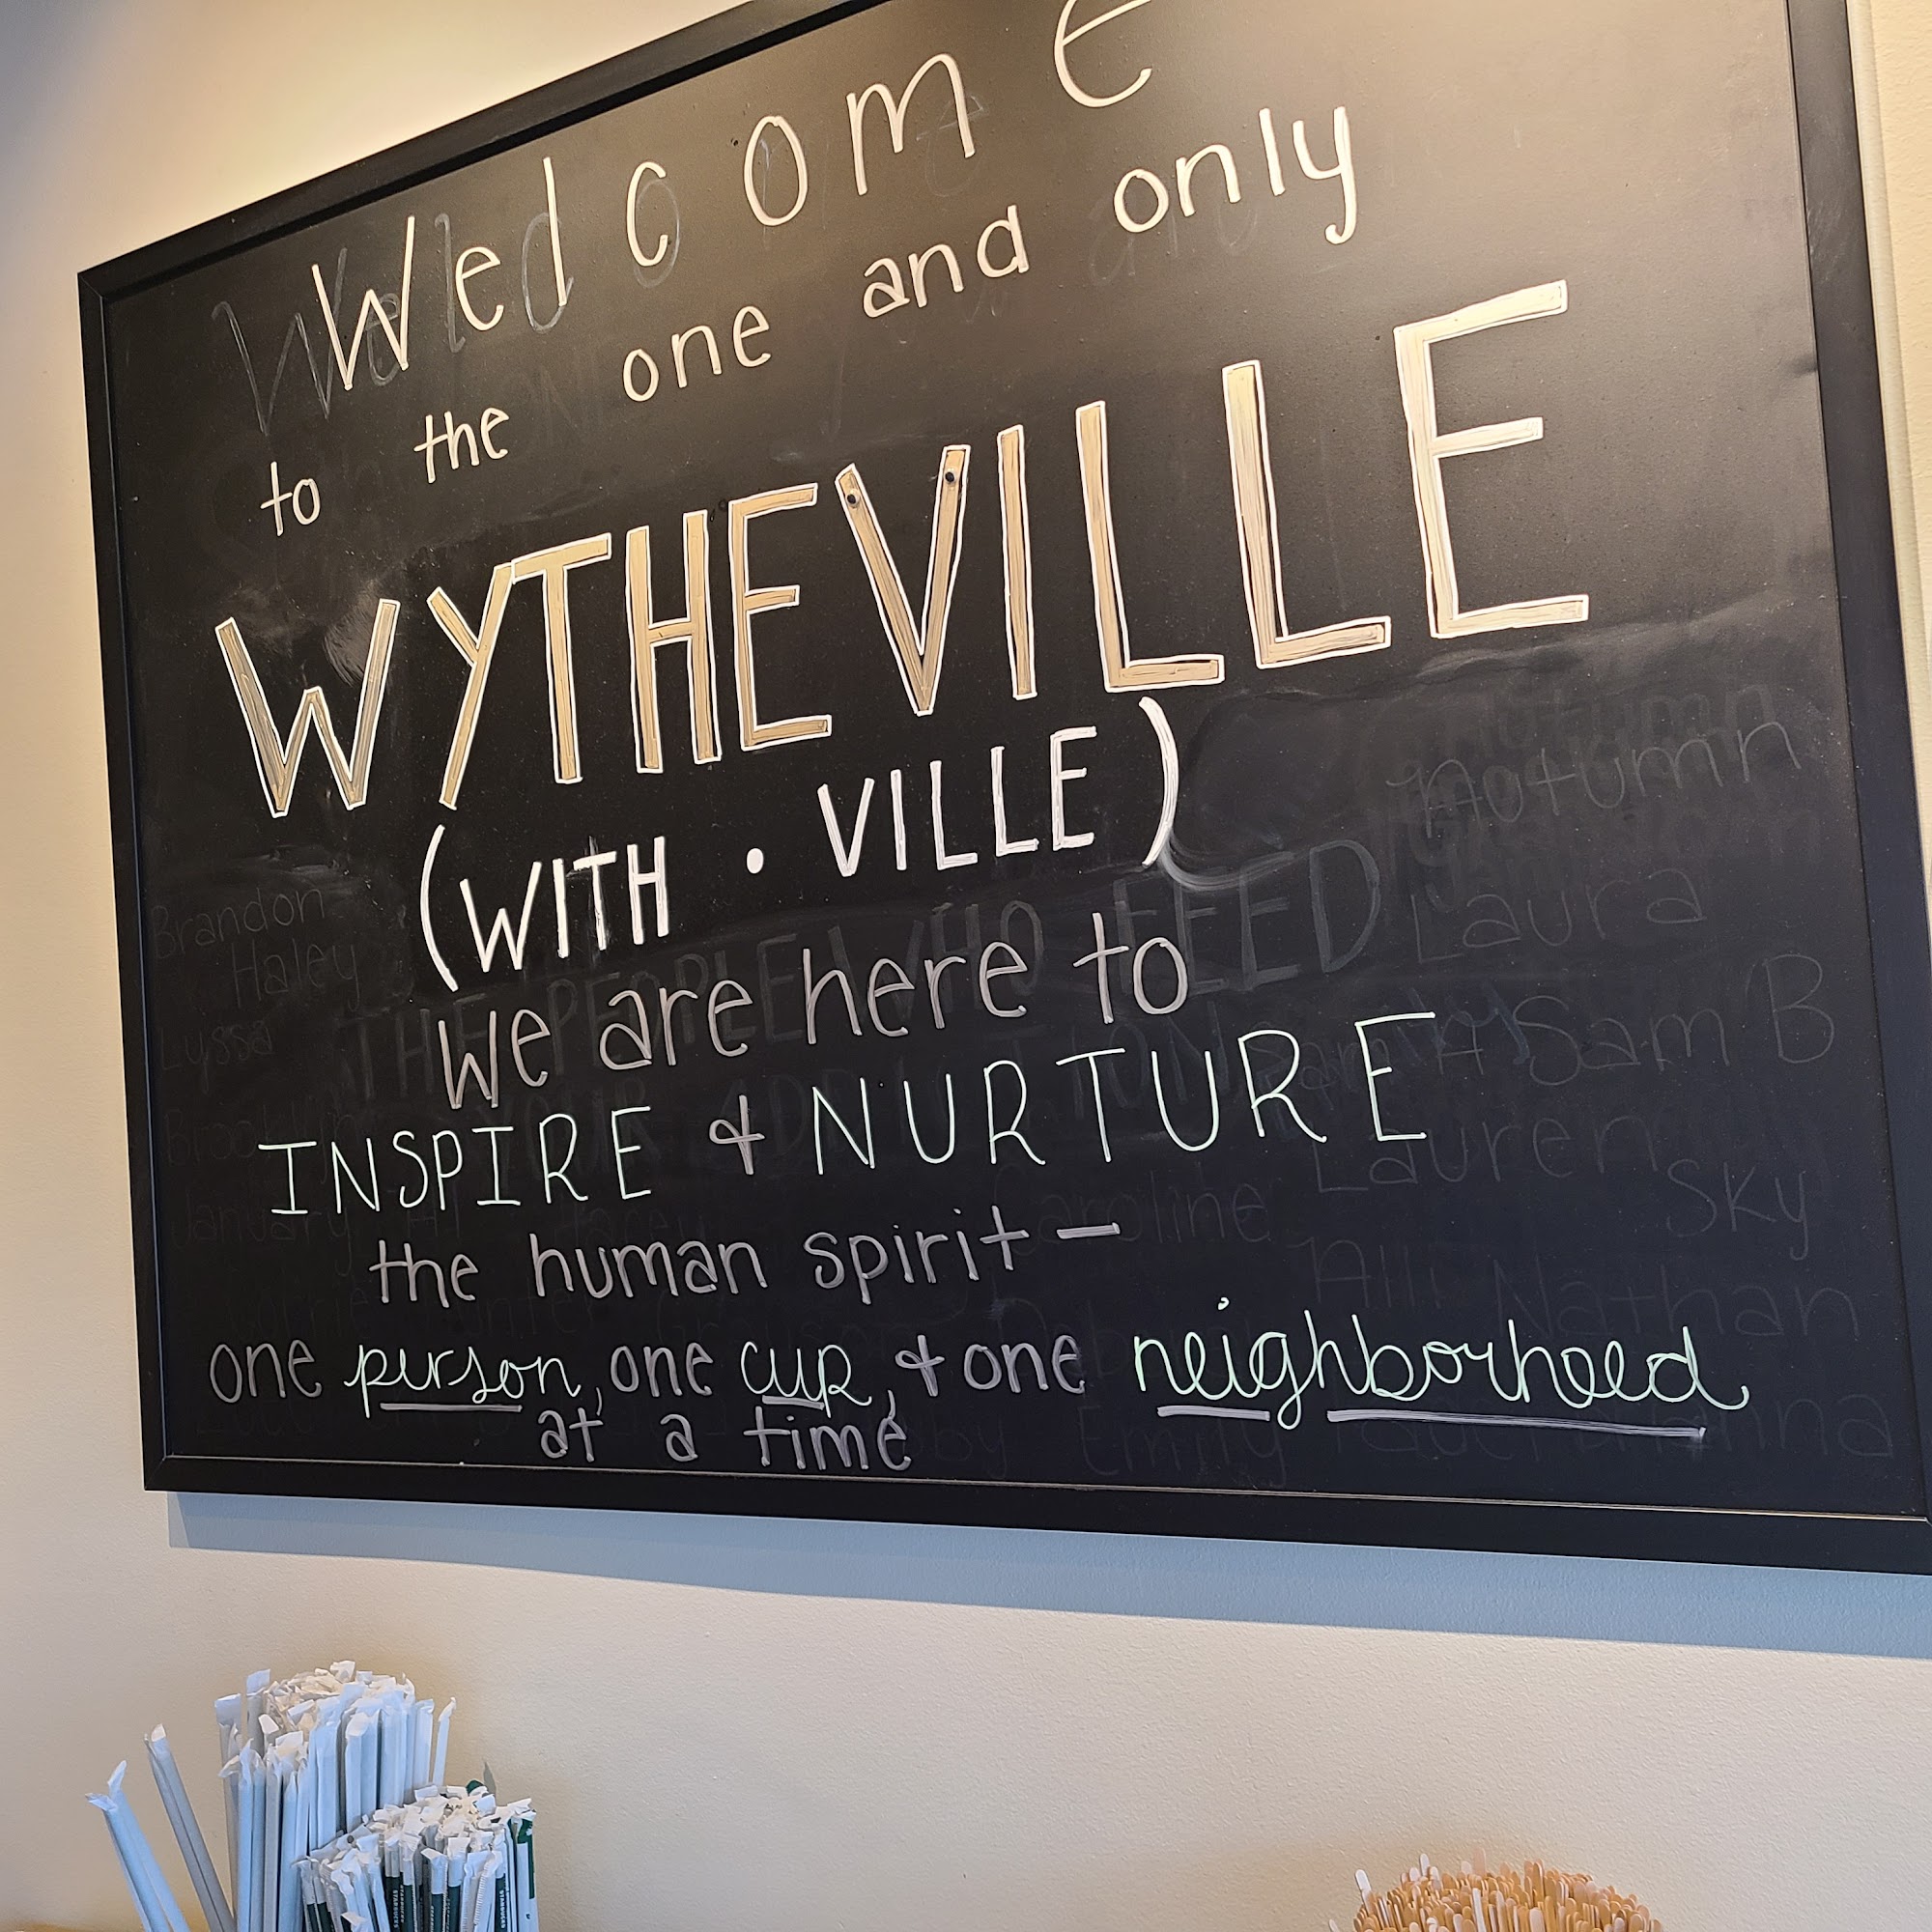 Welcome
to the one and only
WYTHEVILLE
(WITH • VILLE)
we are here to
INSPIRE & NURTURE
the human spirit —
one person, one cup, & one neighborhood
at a time
Autumn
Brandon
Haley
Laura
Lyssa
THE PEOPLE WHO FEED
Sam A Sam B
Lauren
Caroline
Sky
Alli Nathan
Emily